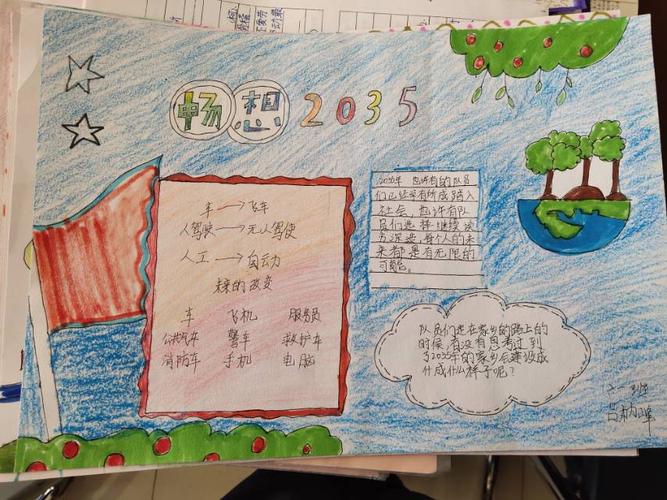 畅想2035
车→飞车
人驾驶→无人驾使
人工→自动
未来的改变
车 飞机 服务员
公共汽车 警车 救护车
消防车 手机 电脑
2035年 也许有的队员
们已经学有所成踏入
社会，也许有队
员们选择继续读
书深造，每个人的未
来都是有无限的
可能。
队员们走在家乡的路上的
时候，有没有思考过 到
了2035年的家乡后建设成
什成什么样子呢？
二、班